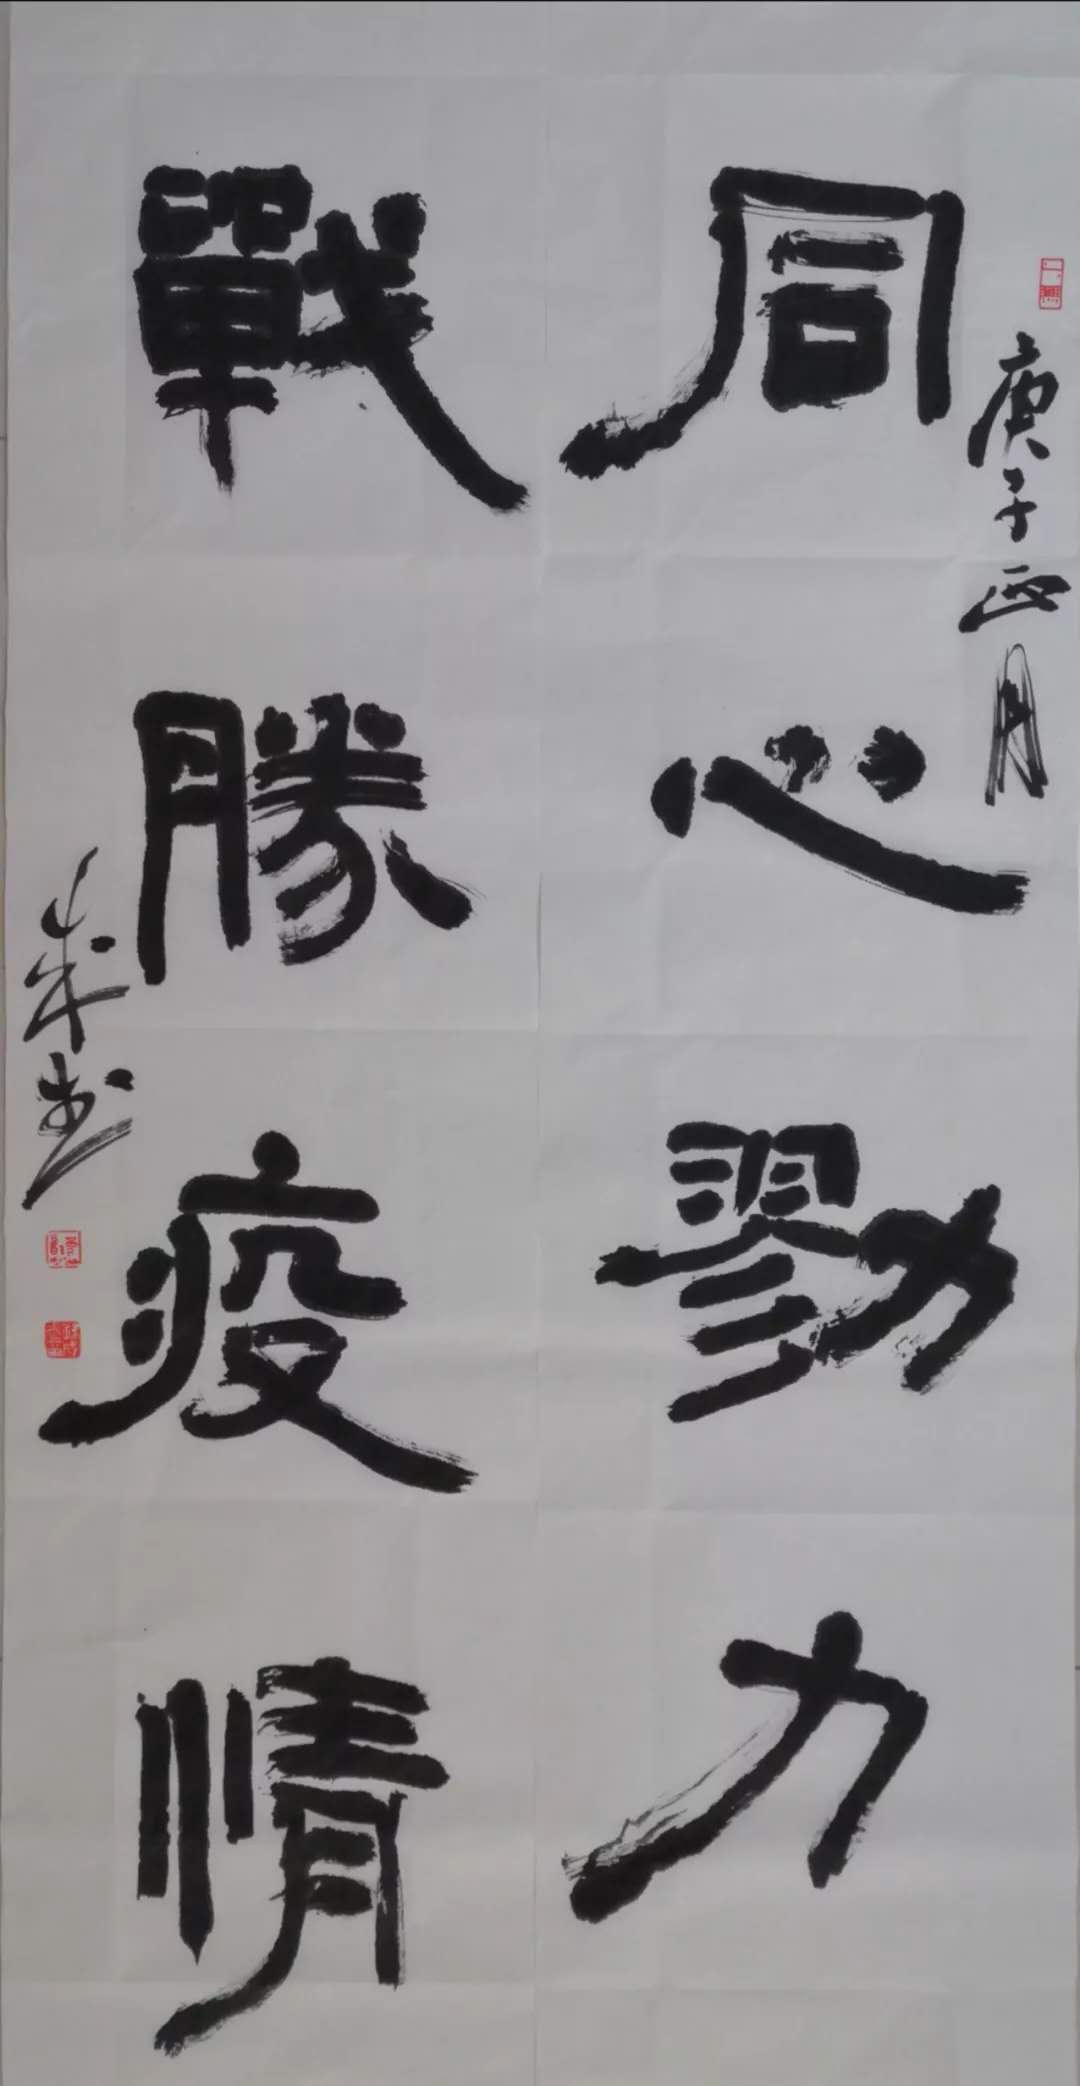 庚子正月
同心勠力
戰勝疫情
书